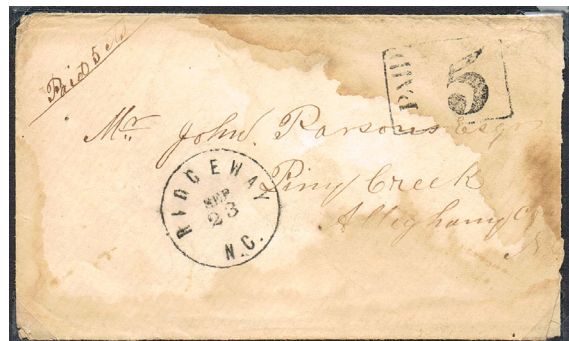 Paid 5 cts
PAID 5
Mr. John. Parsons Esqr
Piny Creek
Alleghany Co
RIDGEWAY
SEP
23
N.C.